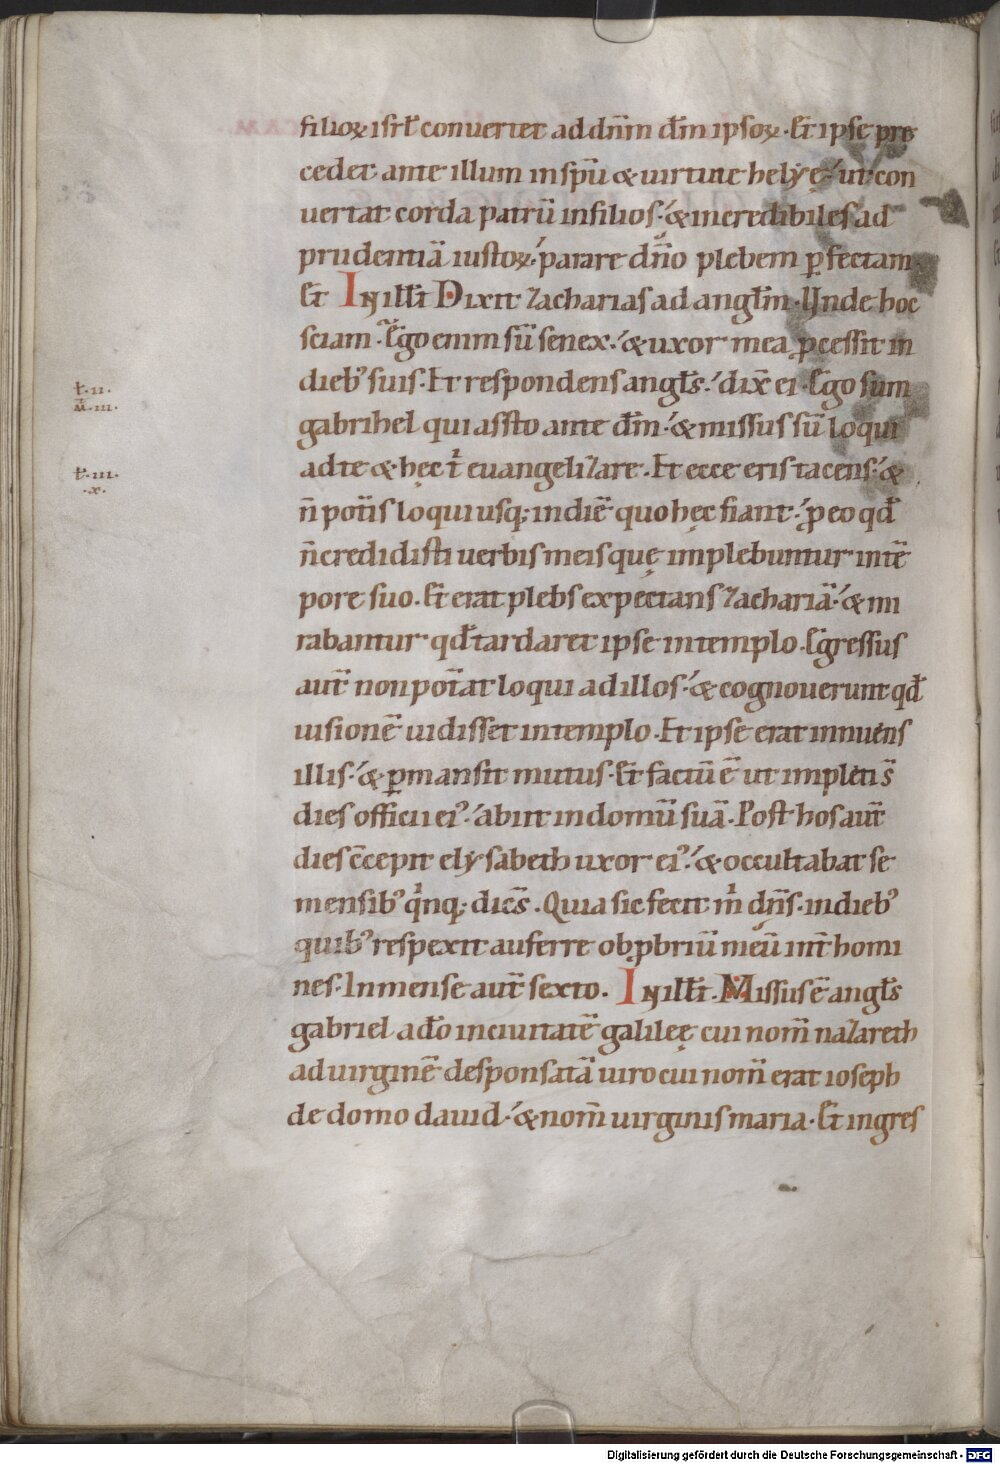 filioꝝ isrl̅ conuertet ad dn̅m dm̅ ipsoꝝ. Et ipse pre
cedet ante illum in spu̅ & uirtute helyę. ut con
uertat corda patru̅ in filios. & incredibiles ad
prudentia̅ iustoꝝ. parare dn̅o plebem ꝑfectam.
Et In ill̅ t̅ Dixit Zacharias ad angl̅m. Unde hoc
sciam. Ego enim su̅ senex. & uxor mea ꝓcessit in
dieb' suis. Et respondens angl̅s. dix̅ ei. Ego sum
gabrihel qui assto ante dm̅. & missus su̅ loqui
ad te & hęc t' euangelizare. Et ecce eris tacens. &
n̅ pot̅is loqui usq; in die̅ quo hęc fiant. ꝓ eo qd̅
n̅ credidisti uerbis meis quę implebuntur in te̅
pore suo. Et erat plebs expectans Zacharia̅. & mi
rabantur qd̅ tardaret ipse in templo. Egressus
aut̅ non pot̅at loqui ad illos. & cognouerunt qd̅
uisione̅ uidisset in templo. Et ipse erat innuens
illis. & ꝑmansit mutus. Et factu̅ e̅ ut impleti s̅
dies officii ei'. abiit in domu̅ sua̅. Post hos aut̅
dies c̅cepit elysabeth uxor ei'. & occultabat se
mensib' qinq; dice̅s. Quia sic fecit m' dn̅s. in dieb'
quib' respexit auferre obꝓbriu̅ meu̅ int̅ homi
nes. In mense aut̅ sexto. In ill̅ t̅. Missus e̅ angl̅s
gabriel a do̅ in ciuitate̅ galileę cui nom̅ nazareth
ad uirgine̅ desponsata̅ uiro cui nom̅ erat ioseph
de domo dauid. & nom̅ uirginis maria. Et ingres
t.ii.
M.iii.
t.iii.
.x.
Digitalisierung gefördert durch die Deutsche Forschungsgemeinschaft - DFG